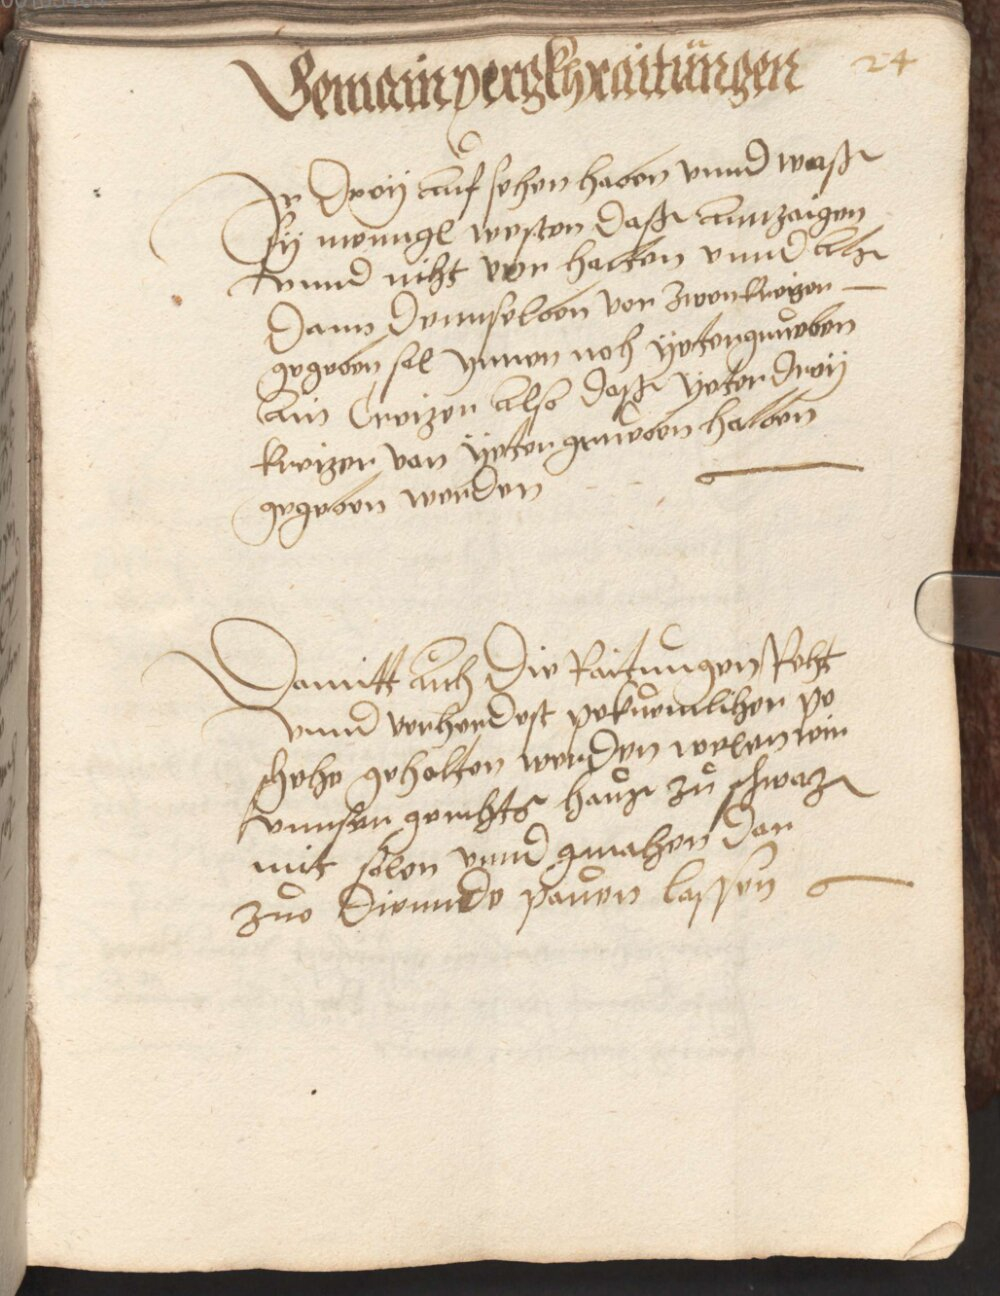 Gemain pergkhraitungen 24
Ir dreÿ aufsehen haben vnnd waß
sÿ menngl westen daß annzaigen
vnnd nicht ver halten vnnd alß
dann demselben vor zwen kreizer
gegeben sol ymen noch ÿeter grueben
ain Creizer also daß ÿeter dreÿ
kreizer von ÿeter grueben haben
gegeben werden
Damitt auch die Raitungen Recht
vnnd vorherdest pekuemlicher pe
schehe gehalten werden wellen wir
vnnser gerichts hauß zu schwaz
mit solen vnnd gmachen dar
zuo diennde pauen lassen